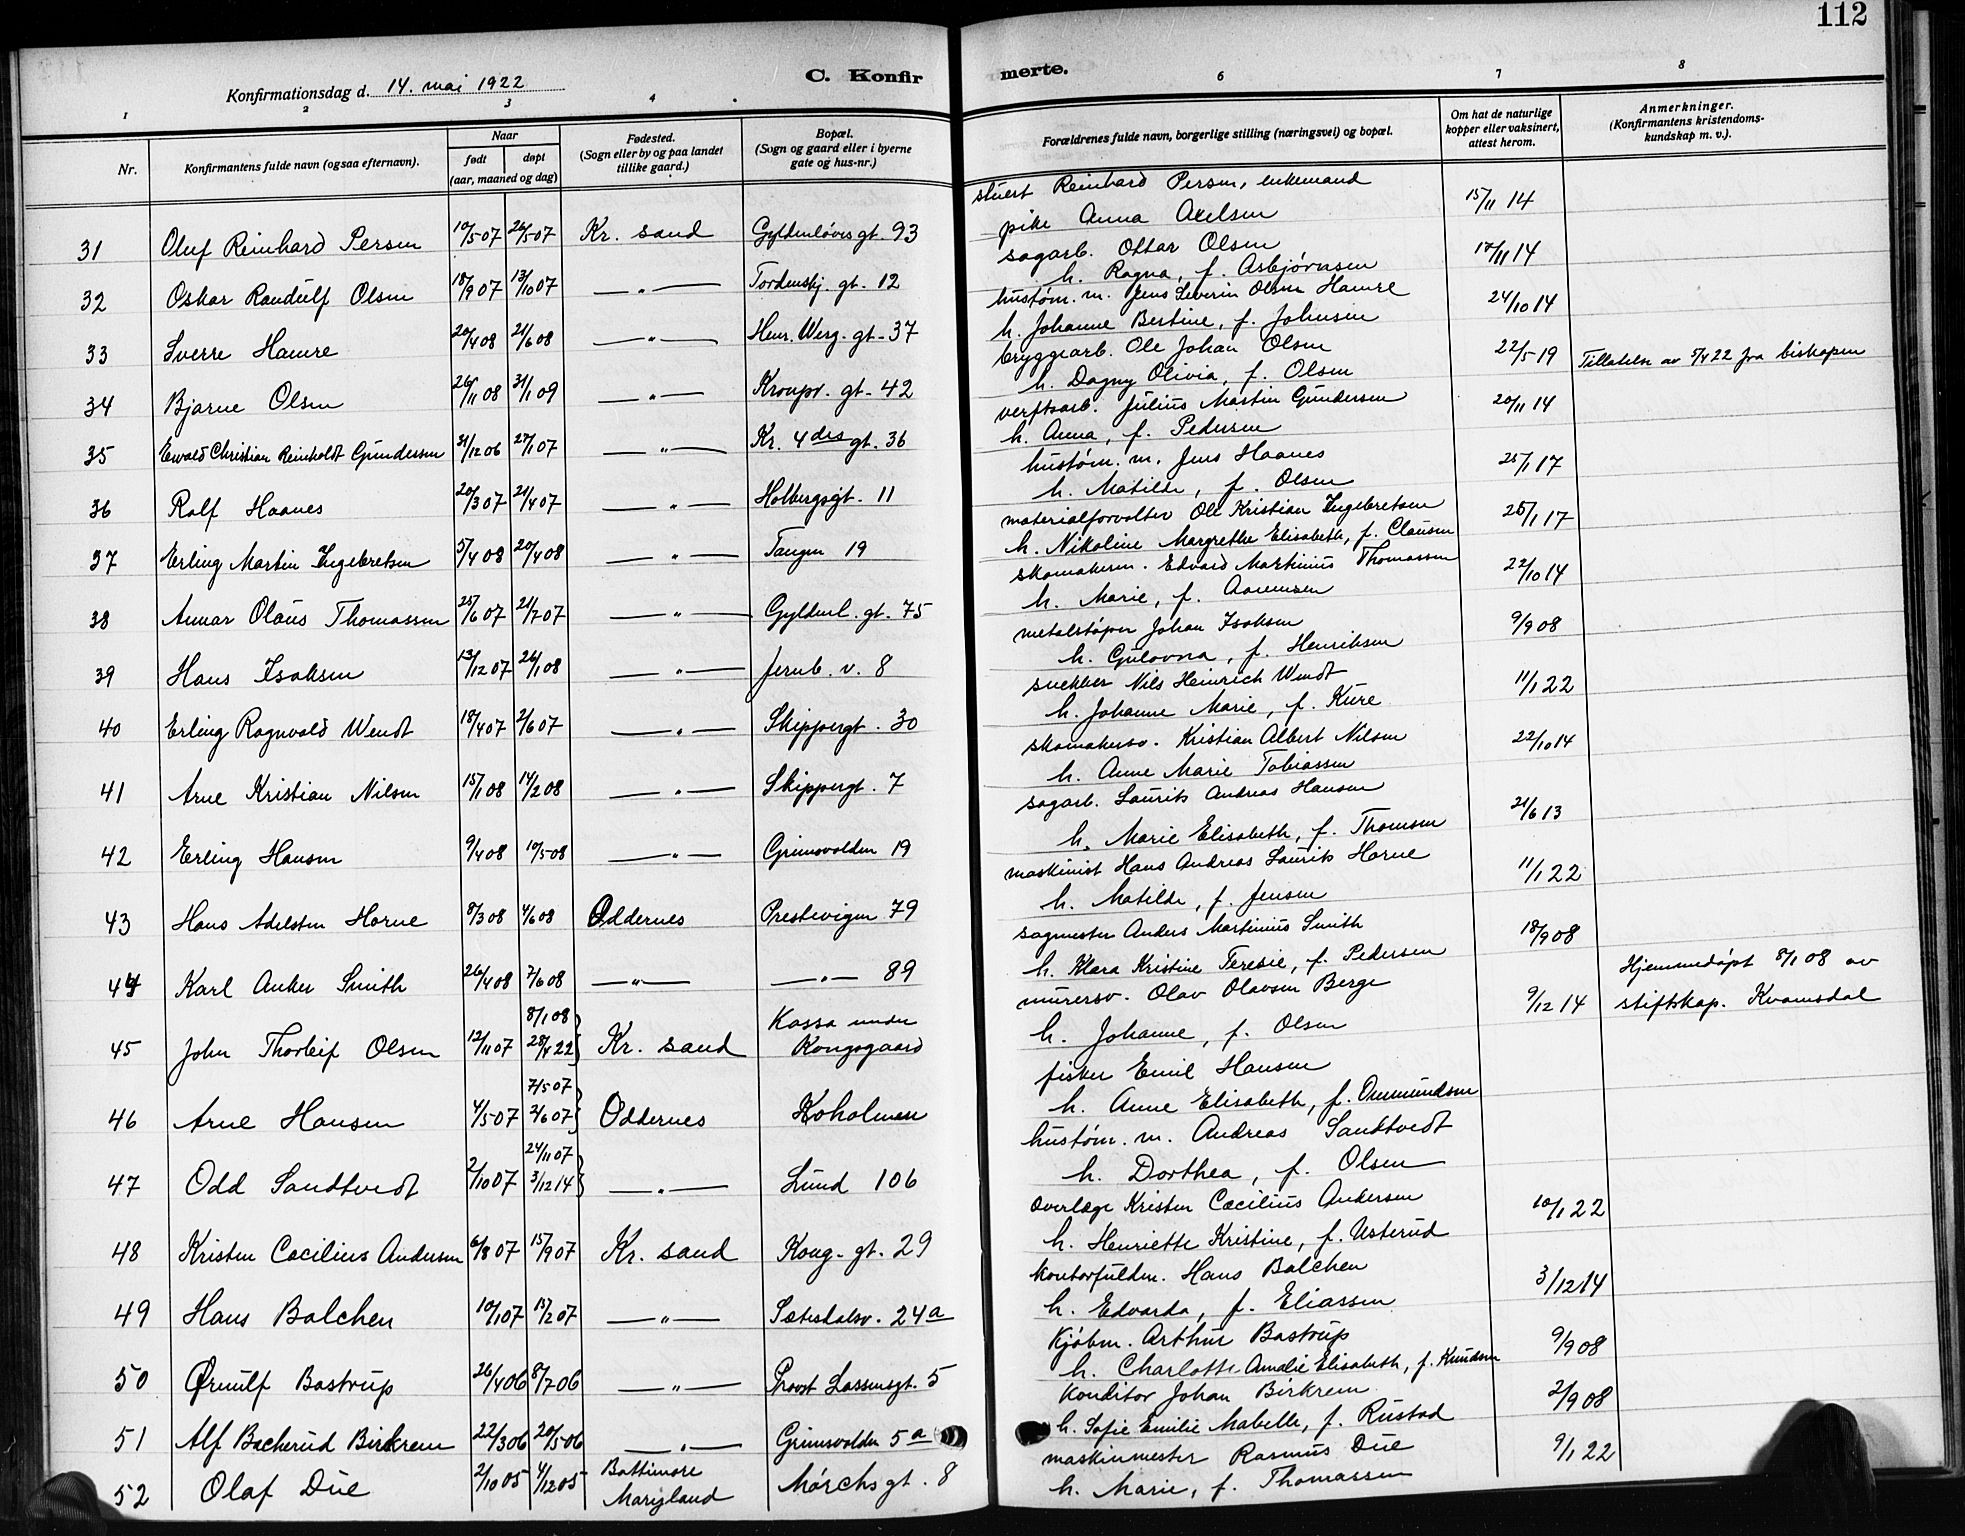 112
Konfirmationsdag d. 14. mai 1922
C. Konfirmerte.
1 2 3 4 6 7 8
Nr.
Konfirmantens fulde navn (ogsaa efternavn).
Naar
født døpt
(aar, maaned og dag)
Fødested.
(Sogn eller by og paa landet
tillike gaard.)
Bopæl.
(Sogn og gaard eller i byerne
gate og hus-nr.)
Forældrenes fulde navn, borgerlige stilling (næringsvei) og bopæl.
Om hat de naturlige
kopper eller vaksinert,
attest herom.
Anmerkninger.
(Konfirmantens kristendoms-
kundskap m. v.).
stuert Reinhard Persen, enkemand
31 Oluf Reinhard Persen 10/5 07 26/5 07 Kr. sand Gyldenløves gt. 93 pike Anna Axelsen 15/11 14
sagarb. Ottar Olsen
32 Oskar Randulf Olsen 18/9 07 13/10 07 — " — Tordenskj. gt. 12 h. Ragna, f. Asbjørnsen 17/11 14
hustøm. m. Jens Severin Olsen Hamre
33 Sverre Hamre 20/4 08 21/6 08 — " — Henr. Werg. gt. 37 h. Johanne Bertine, f. Johnsen 24/10 14
bryggearb. Ole Johan Olsen
34 Bjarne Olsen 26/11 08 31/1 09 — " — Kronpr. gt. 42 h. Dagny Olivia, f. Olsen 22/5 19 Tillatelse av 5/4 22 fra biskopen
verftsarb. Julius Martin Gundersen
35 Ewald Christian Reinholdt Gundersen 31/12 06 27/1 07 — " — Kr. 4des gt. 36 h. Anna, f. Pedersen 20/11 14
hustøm. m. Jens Haanes
36 Ralf Haanes 20/3 07 21/4 07 — " — Holbergsgt. 11 h. Matilde, f. Olsen 25/1 17
materialforvalter Ole Kristian Ingebretsen
37 Erling Martin Ingebretsen 5/4 08 20/4 08 — " — Tangen 19 h. Nikoline Margrethe Elisabeth, f. Clausen 25/1 17
skomakerm. Edvard Martinius Thomassen
38 Annar Olaus Thomassen 25/6 07 21/7 07 — " — Gyldenl. gt. 75 h. Marie, f. Aanensen 22/10 14
metalstøper Johan Isaksen
39 Hans Isaksen 13/12 07 26/1 08 — " — Jernb. v. 8 h. Gulovna, f. Henriksen 9/9 08
snekker Nils Heinrich Wendt
40 Erling Ragnvald Wendt 18/4 07 2/6 07 — " — Skippergt. 30 h. Johanne Marie, f. Kure 11/1 22
skomakersv. Kristian Albert Nilsen
41 Arne Kristian Nilsen 15/1 08 14/2 08 — " — Skippergt. 7 h. Anne Marie Tobiassen 22/10 14
sagarb. Laurits Andreas Hansen
42 Erling Hansen 9/4 08 10/5 08 — " — Grimsvolden 19 h. Marie Elisabeth, f. Thomsen 21/6 13
maskinist Hans Andreas Laurits Horne
43 Hans Adelsten Horne 8/3 08 4/6 08 Oddernes Prestevigen 79 h. Matilde, f. Jensen 11/1 22
sagmester Anders Martinius Smith
44 Karl Anker Smith 26/4 08 7/6 08 — " — — " — 89 h. Klara Kristine Teresie, f. Pedersen 18/9 08
murersv. Olav Olavsen Berge
45 John Thorleif Olsen 12/11 07 8/1 08 28/4 22 Kr. sand Kassa under Kongsgaard h. Johanne, f. Olsen 9/12 14 Hjemmedøpt 8/1 08 av
stiftskap. Kvamsdal
fisker Emil Hansen
46 Arne Hansen 4/5 07 7/5 07 2/6 07 Oddernes Koholmen h. Anne Elisabeth, f. Ommundsen
hustøm. m. Andreas Sandtvedt
47 Odd Sandtvedt 2/10 07 24/11 07 3/12 14 — " — Lund 106 h. Dorthea, f. Olsen
overlæge Kristen Cæcilius Andersen
48 Kristen Cæcilius Andersen 6/8 07 15/9 07 Kr. sand Kong. gt. 29 h. Henriette Kristine, f. Usterud 10/1 22
kontorfuldm. Hans Balchen
49 Hans Balchen 10/1 07 15/2 07 — " — Sætesdalsv. 24a h. Edvarda, f. Eliassen 3/12 14
Kjøbm. Arthur Bastrup
50 Ørnulf Bastrup 26/4 06 8/7 06 — " — Provst Lassensgt. 5 h. Charlotte Amalie Elisabeth, f. Knudsen 9/9 08
Konditor Johan Birkrem
51 Alf Bacherud Birkrem 22/3 06 20/5 06 — " — Grimsvolden 5a h. Sofie Emilie Mabelle, f. Rustad 2/9 08
maskinmester Rasmus Due
52 Olaf Due 2/10 05 4/12 05 Baltimore Maryland Mørchs gt. 8 h. Marie, f. Thomassen 9/1 22